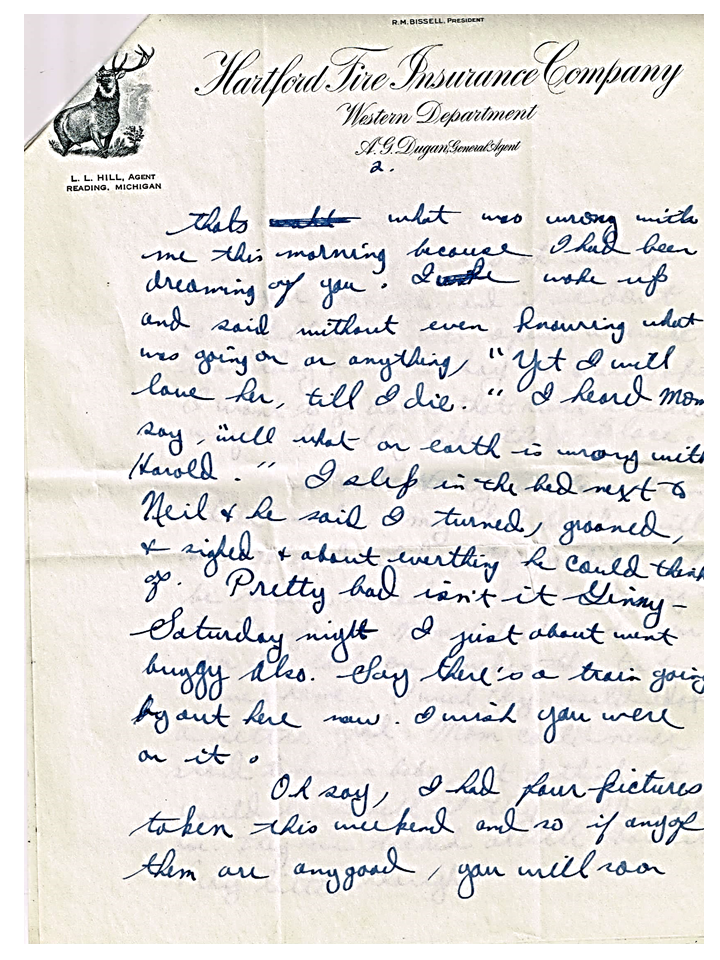 R.M. BISSELL, PRESIDENT
Hartford Fire Insurance Company
Western Department
A.G. Dugan, General Agent
L. L. HILL, AGENT
READING, MICHIGAN
2.
thats what was wrong with
me this morning because I had been
dreaming of you. I woke up
and said without even knowing what
was going on or anything, "Yet I will
love her, till I die." I heard Mom
say, "well what on earth is wrong with
Harold." I slep in the bed next to
Neil & he said I turned, groaned,
& sighed & about everthing he could think
of. Pretty bad isn't it Ginny -
Saturday night I just about went
buggy also. Say there's a train going
by out here now. I wish you were
on it.
Oh say, I had four pictures
taken this weekend and so if any of
them are any good, you will soon